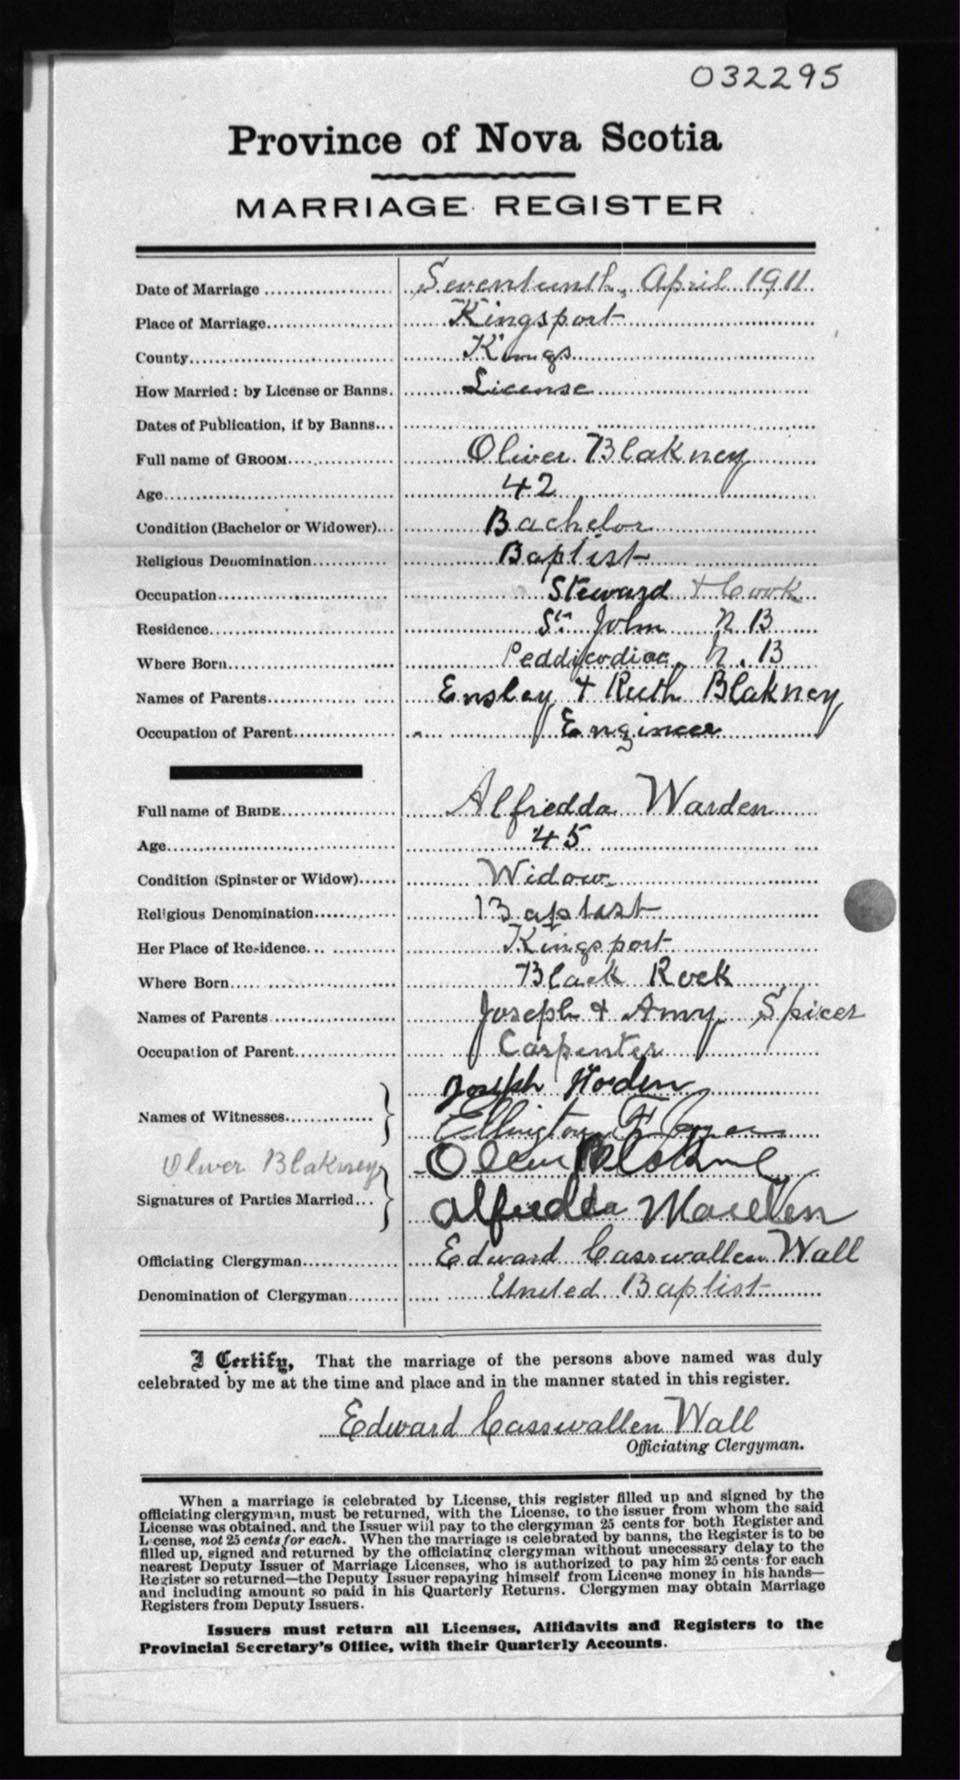 032295
Province of Nova Scotia
MARRIAGE REGISTER
Date of Marriage Seventeenth, April 1911
Place of Marriage Kingsport
County Kings
How Married: by License or Banns. License
Dates of Publication, if by Banns
Full name of GROOM Oliver Blakney
Age 42
Condition (Bachelor or Widower) Bachelor
Religious Denomination Baptist
Occupation Steward & Cook
Residence St. John N B
Where Born Peddicodiac, N. B
Names of Parents Ensley & Ruth Blakney
Occupation of Parent Engineer
Full name of BRIDE Alfredda Warden
Age 45
Condition (Spinster or Widow) Widow
Religious Denomination Baptist
Her Place of Residence Kingsport
Where Born Black Rock
Names of Parents Joseph & Amy Spicer
Occupation of Parent Carpenter
Joseph
Names of Witnesses
Ellington F
Oliver Blakney
Signatures of Parties Married
Alfredda
Officiating Clergyman Edward Casswallen Wall
Denomination of Clergyman United Baptist
I Certify, That the marriage of the persons above named was duly
celebrated by me at the time and place and in the manner stated in this register.
Edward Casswallen Wall
Officiating Clergyman.
When a marriage is celebrated by License, this register filled up and signed by the
officiating clergyman, must be returned, with the License, to the issuer from whom the said
License was obtained, and the Issuer will pay to the clergyman 25 cents for both Register and
License, not 25 cents for each. When the marriage is celebrated by banns, the Register is to be
filled up, signed and returned by the officiating clergyman without unecessary delay to the
nearest Deputy Issuer of Marriage Licenses, who is authorized to pay him 25 cents for each
Register so returned—the Deputy Issuer repaying himself from License money in his hands—
and including amount so paid in his Quarterly Returns. Clergymen may obtain Marriage
Registers from Deputy Issuers.
Issuers must return all Licenses, Affidavits and Registers to the
Provincial Secretary's Office, with their Quarterly Accounts.